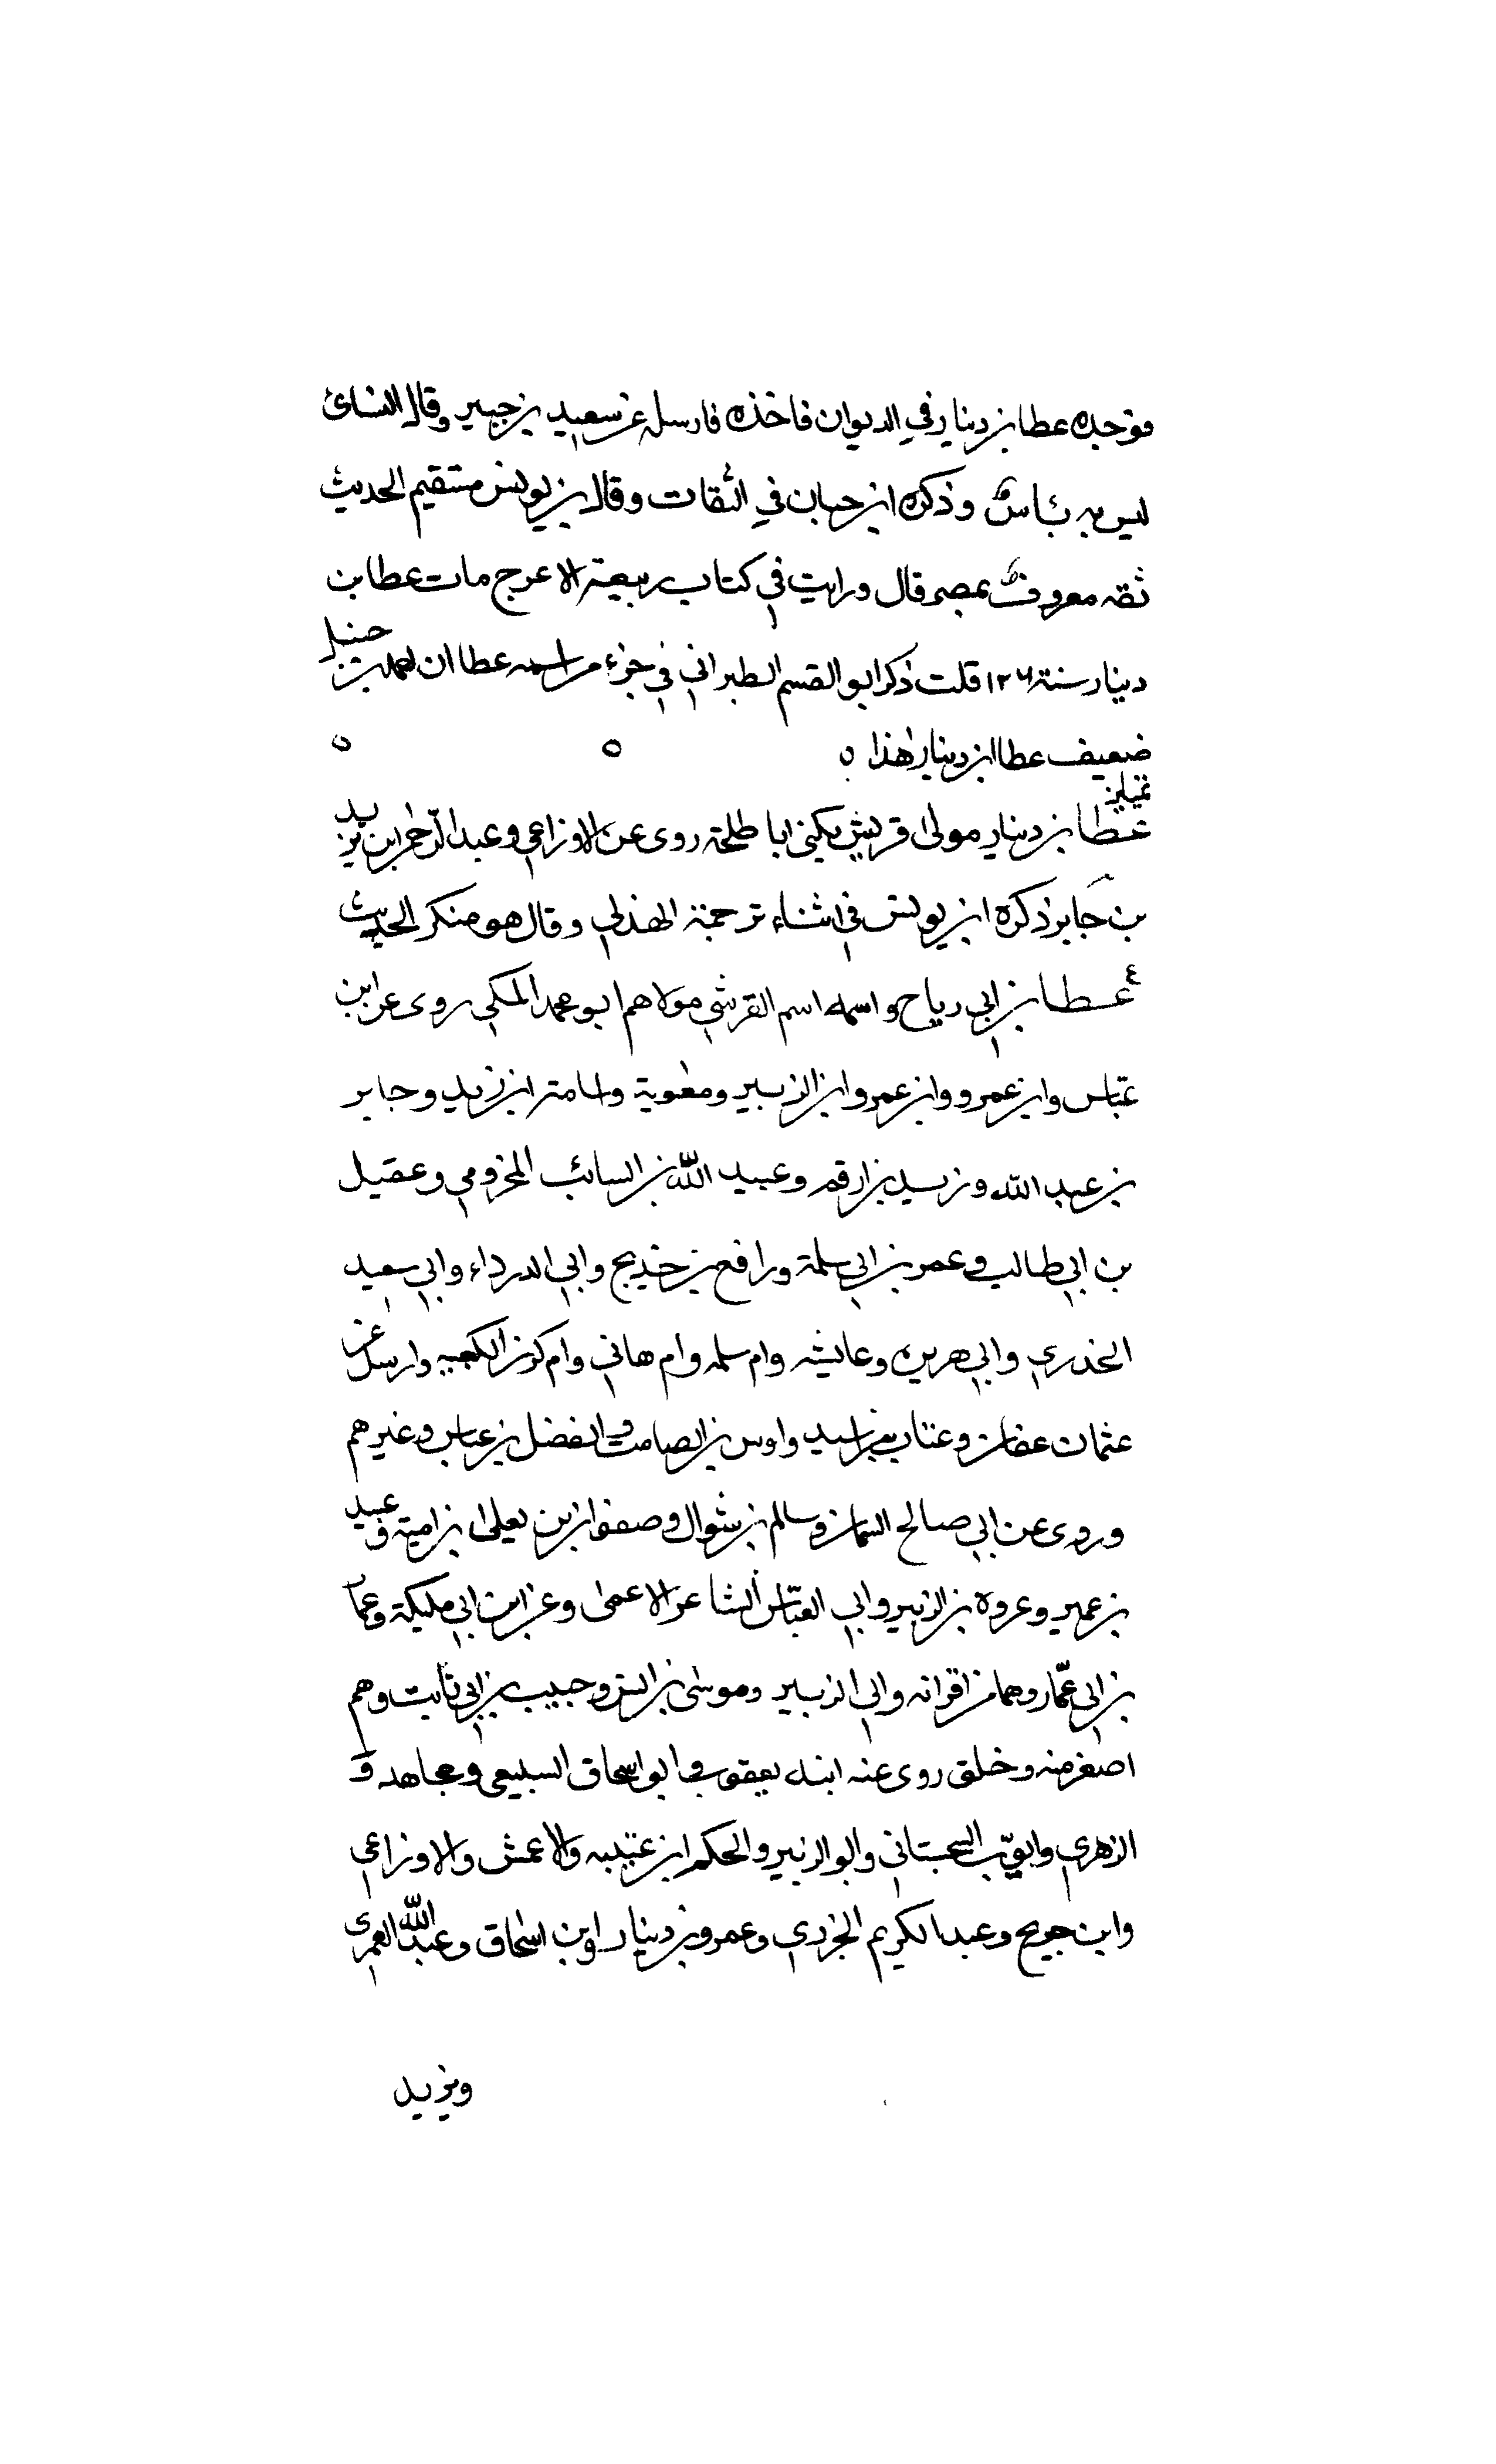 فوجده عطا بن دينار في الديوان فاخذه فارسله عن سعيد بن جبير وقال النسائ
ليس به بئاس وذكره ابن حبان في الثقات وقال بن يونس مستقيم الحديث
ثقه معروف بمصر قال ورايت في كتاب ربيعة الاعرج مات عطا بن
دينار سنة ١٢٦ قلت ذكر ابو القسم الطبراني في جزء من اسمه عطا ان احمد بن حنبل
ضعيف عطا ابن دينار هذا ٥ ٥ ٥
تمييز
عطا بن دينار مولى قريش يكنى ابا طلحة روى عن الاوزاعي وعبد الرحمن ابن يزيد
بن جابر ذكره ابن يونس في اثناء ترجمة الهذلي وقال هو منكر الحديث
ع عطا بن ابي رباح واسمه اسم القرشي مولاهم ابو محمد المكي روى عن ابن
عباس وابن عمرو وابن عمر وابن الزبير ومعوية واسامة ابن زيد وجابر
بن عبد الله وزيد بن ارقم وعبيد الله بن السائب المخزومي وعقيل
بن ابي طالب وعمر بن ابي سلمة ورافع بن خديج وابي الدرداء وابي سعيد
الخدري وابي هريره وعايشه وام سلمه وام هاني وام كرز الكعبيه وارسل عن
عثمان عفان وعتاب بن اسيد واوس بن الصامت والفضل بن عباس وغيرهم
وروى عن ابي صالح السمان وسالم بن شوال وصفوان بن يعلى ابن امية وعبيد
بن عمير وعروه بن الزبير وابي العباس الشاعر الاعمى وعن ابن ابي مليكة وعمار
بن ابي عمار وهما من اقرانه وابي الزبير وموسى بن انس وحبيب بن ابي ثابت وهم
اصغر منه وخلق روى عنه ابنه يعقوب وابو اسحاق السبيعي ومجاهد و
الزهري وايوب السجستاني وابو الزبير والحكم ابن عتيبه والاعمش والاوزاعي
وابن جريج وعبد الكريم الجزري وعمرو بن دينار وابن اسحاق وعبد الله العمري
ويزيد